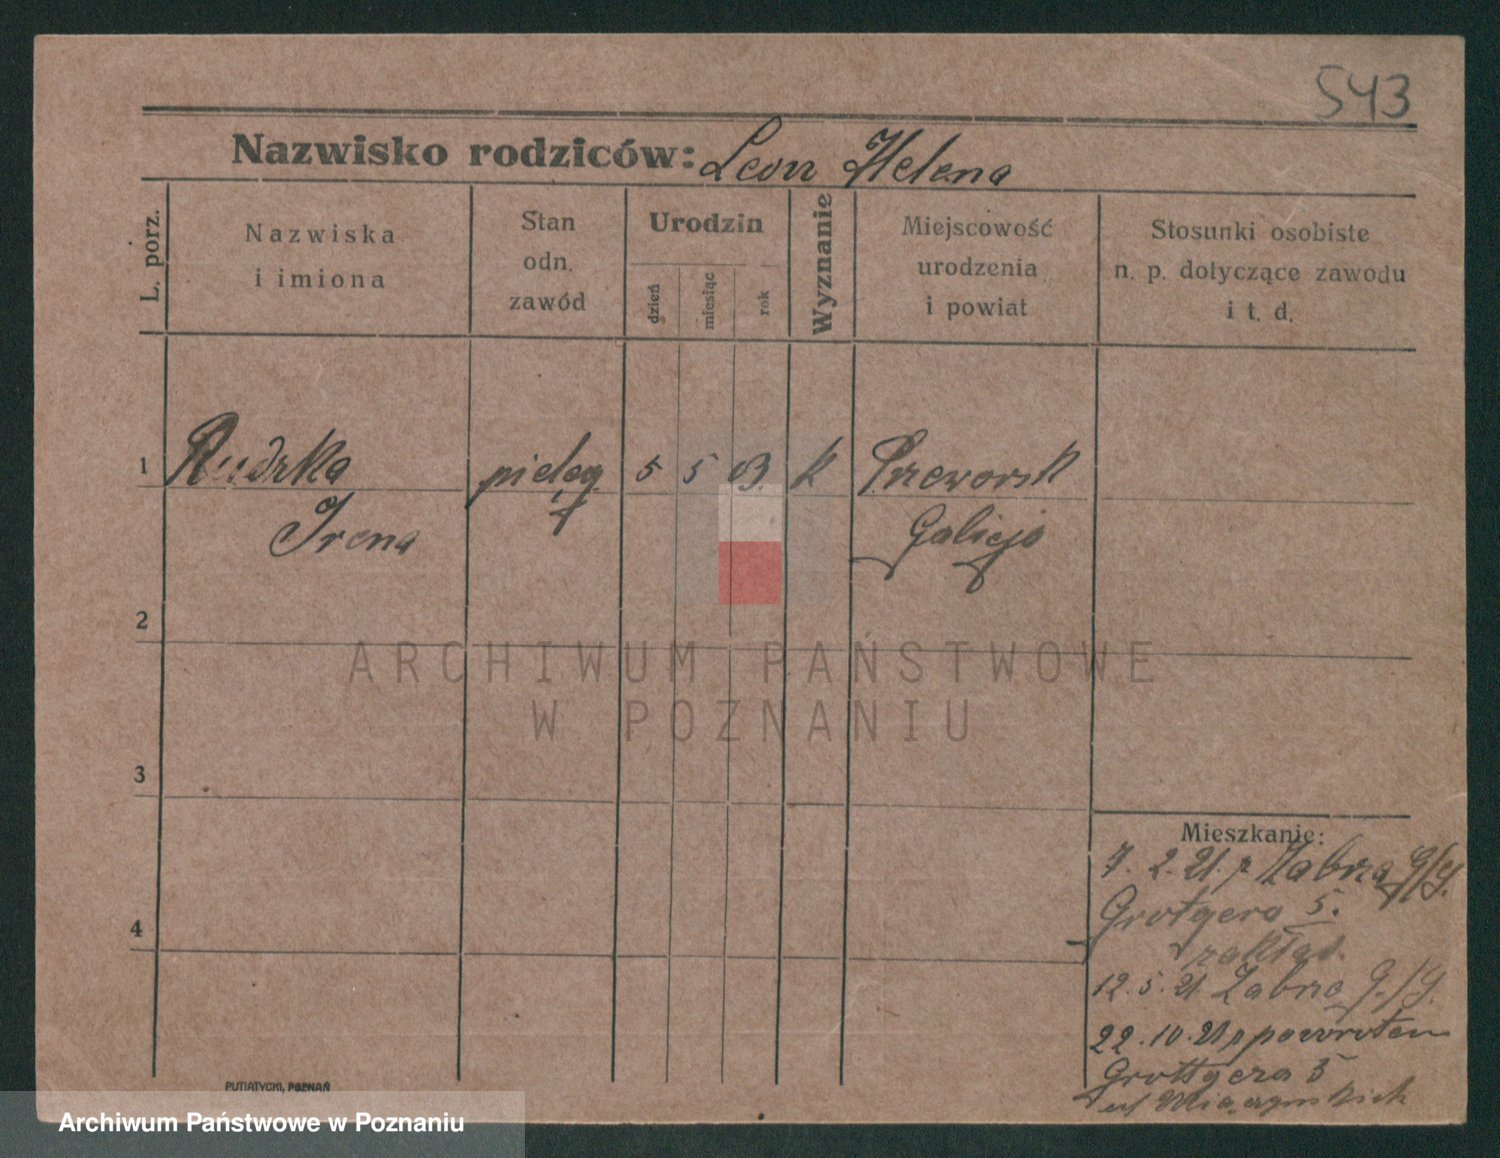 543
Nazwisko rodziców: Leon Helena
L. porz.
Nazwiska
i imiona
Stan
odn.
zawód
Urodzin
dzień
miesiąc
rok
Wyznanie
Miejscowość
urodzenia
i powiat
Stosunki osobiste
n. p. dotyczące zawodu
i t. d.
1
Rudzka
Irena
pielęg
5 5 03. k
Przeworsk
Galicja
2
ARCHIWUM PAŃSTWOWE
W POZNANIU
3
4
Mieszkanie:
7. 2. 21. z Zabrza G/Śl.
Grotgera 5.
zakład.
12. 5. 21. Zabrze G./Śl.
22. 10. 21 z powrotem
Grottgera 5
u/
PUTIATYCKI, POZNAŃ
Archiwum Państwowe w Poznaniu